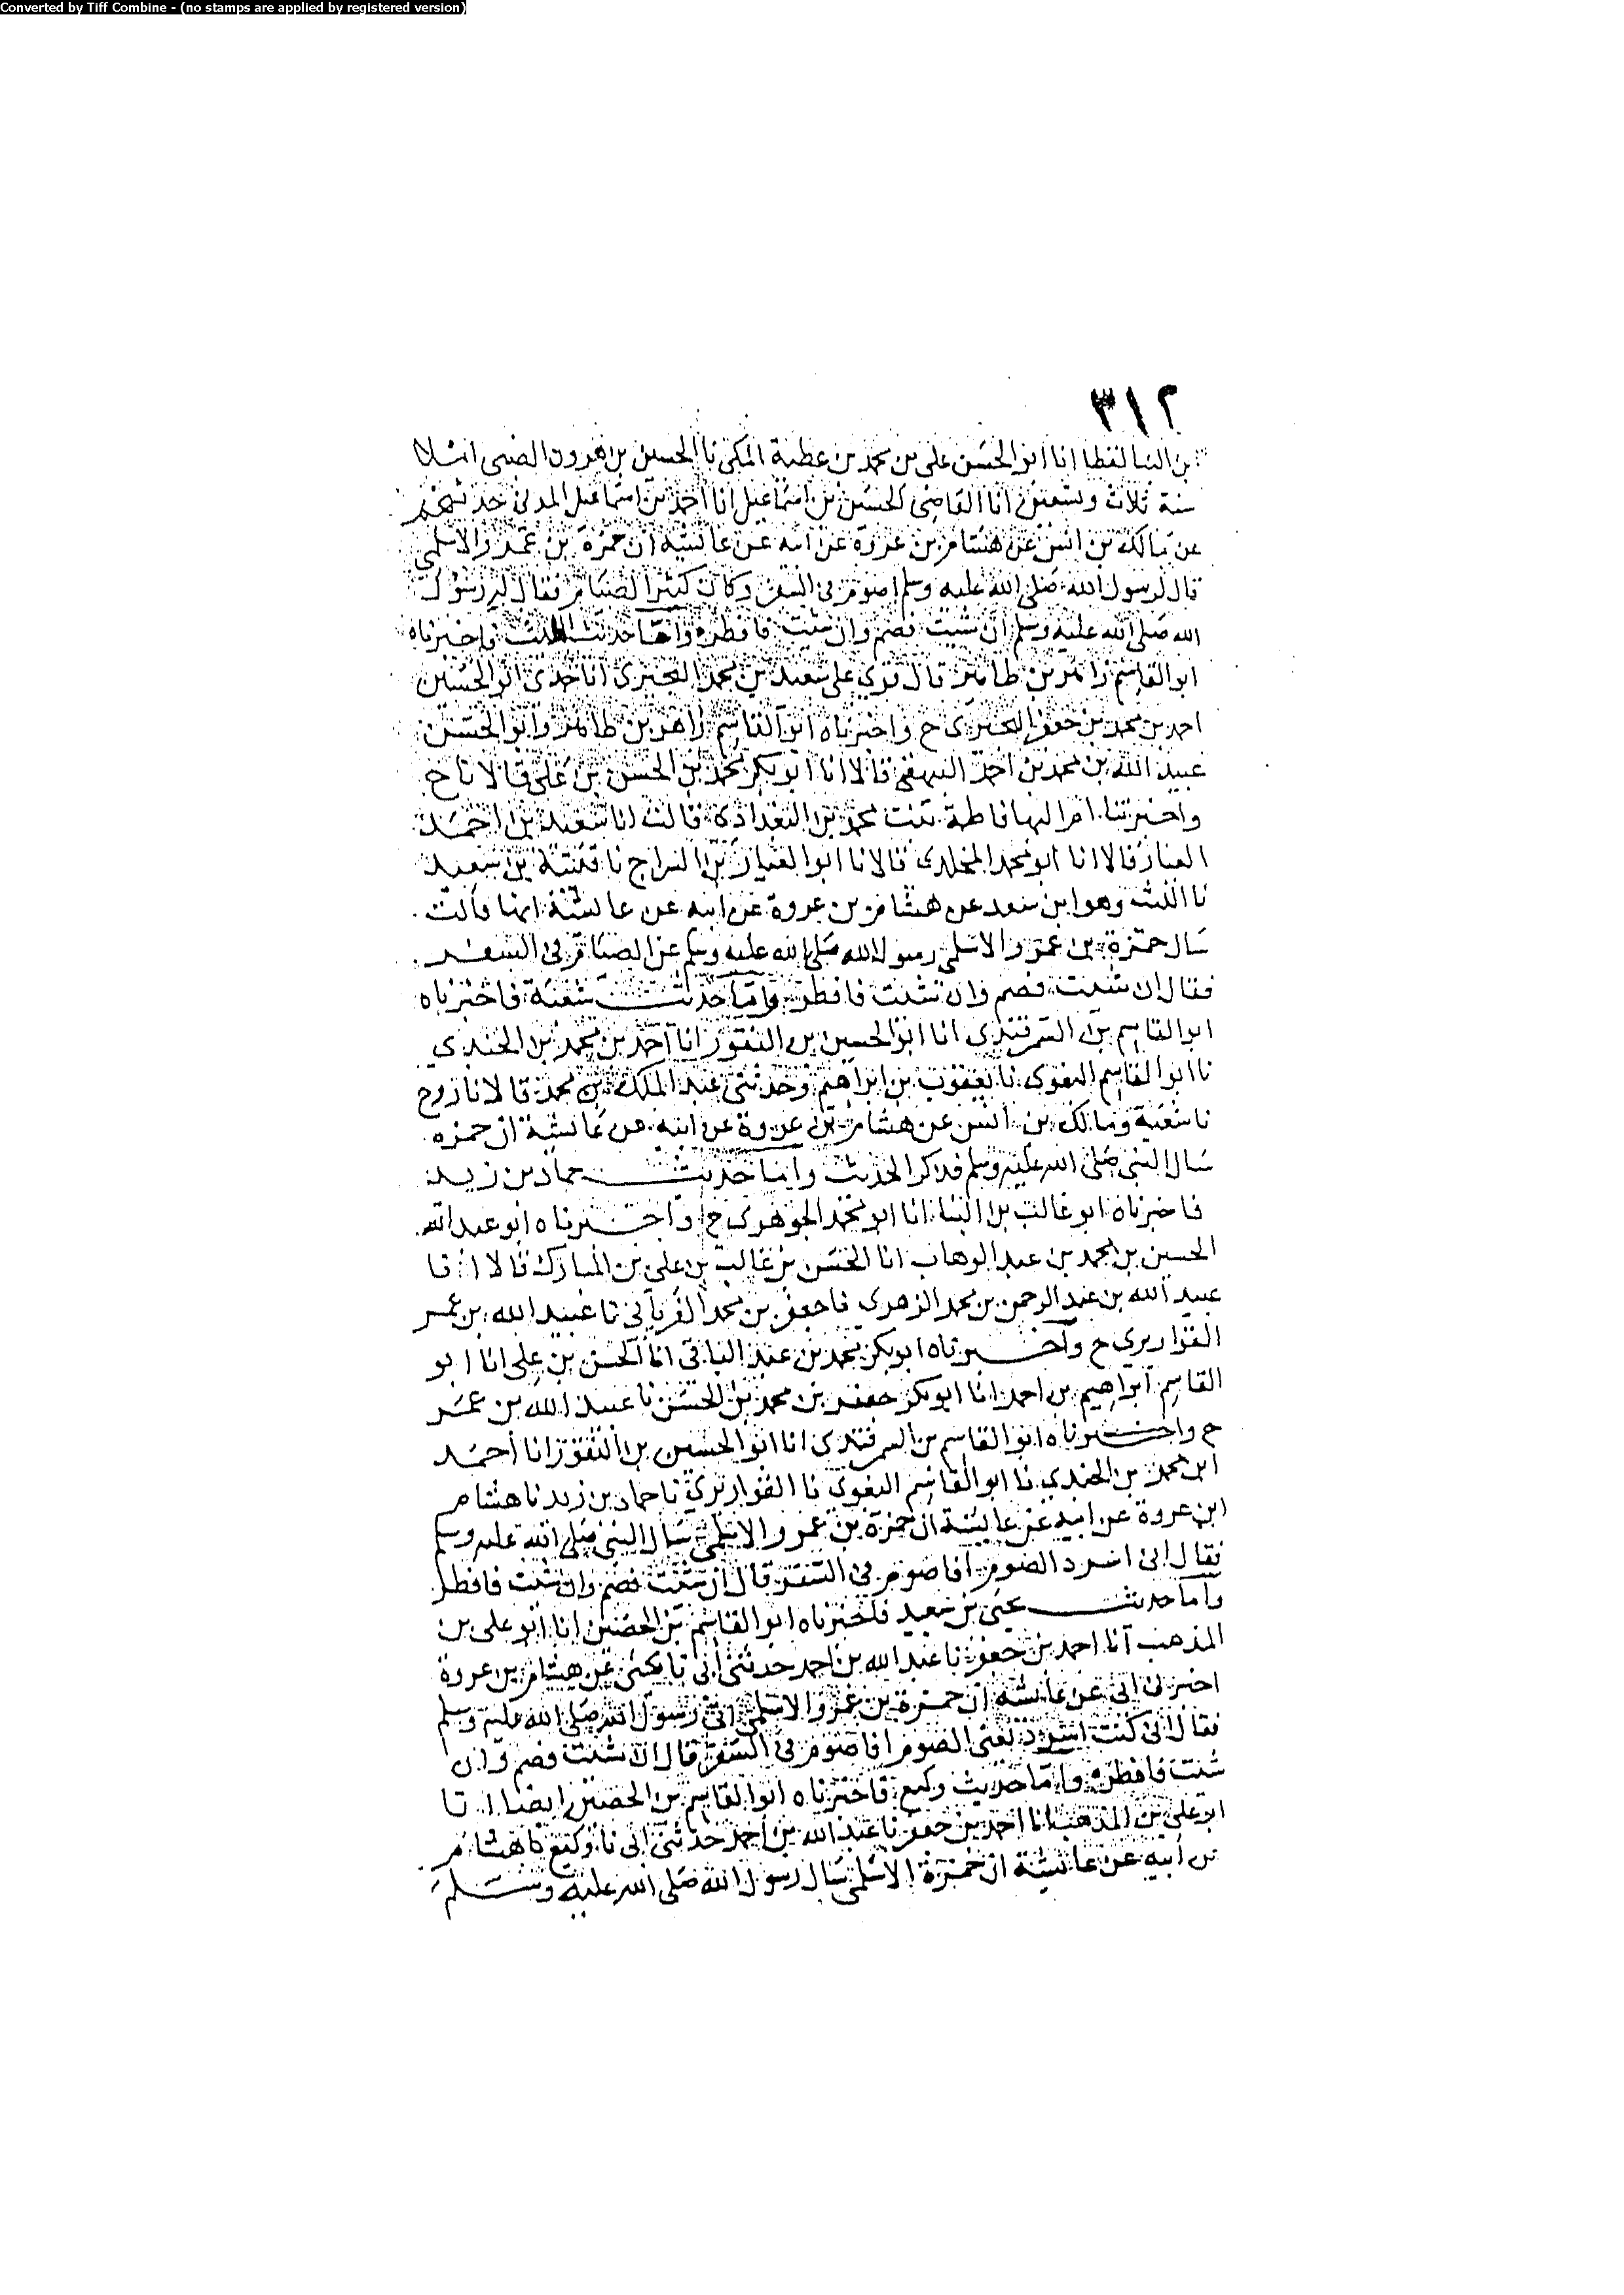 Converted by Tiff Combine - (no stamps are applied by registered version)
٣١٢
بن البنا لفظا انا ابو الحسن على بن محمد بن عطية المكى نا الحسين بن هرون الضبى املا
سنة ثلاث وتسعين انا القاضى الحسين بن اسماعيل انا احمد بن اسماعيل المدنى حدثهم
عن مالك بن انس عن هشام بن عروة عن ابيه عن عائشة ان حمزة بن عمرو الاسلمى
قال لرسول الله صلى الله عليه وسلم اصوم فى السفر وكان كثير الصيام فقال له رسول
الله صلى الله عليه وسلم ان شئت فصم وان شئت فافطر واما حديث الليث فاخبرناه
ابو القاسم زاهر بن طاهر قال قرى على سعيد بن محمد البحيرى انا جدى ابو الحسين
احمد بن محمد بن جعفر البحيرى ح واخبرناه ابو القاسم زاهر بن طاهر وابو الحسن
عبيد الله بن محمد بن احمد البيهقى قالا انا ابو بكر محمد بن الحسن بن على قالا نا ح
واخبرتنا ام البها فاطمة بنت محمد بن البغدادى قالت انا سعيد بن احمد
العيار قالا انا ابو محمد المخلدى قالا نا ابو العباس بن السراج نا قتيبة بن سعيد
نا الليث وهو ابن سعد عن هشام بن عروة عن ابيه عن عائشة انها قالت
سال حمزة بن عمرو الاسلمى رسول الله صلى الله عليه وسلم عن الصيام فى السفر
فقال ان شئت فصم وان شئت فافطر واما حديث شعبة فاخبرناه
ابو القاسم بن السمرقندى انا ابو الحسين بن النقور انا احمد بن محمد بن الجندي
نا ابو القاسم البغوى نا يعقوب بن ابراهيم وحدثنى عبد الملك بن محمد قالا نا روح
نا شعبة ومالك بن انس عن هشام بن عروة عن ابيه عن عائشة ان حمزه
سال النبى صلى الله عليه وسلم فذكر الحديث واما حديث حماد بن زيد
فاخبرناه ابو غالب بن البنا انا ابو محمد الجوهرى ح واخبرناه ابو عبد الله
الحسين بن محمد بن عبد الوهاب انا الحسن بن غالب بن على بن المبارك قالا انا
عبيد الله بن عبد الرحمن بن محمد الزهري نا جعفر بن محمد الفريابى نا عبيد الله بن عمر
القواريري ح واخبرناه ابو بكر محمد بن عبد الباقى انا الحسن بن على انا ابو
القاسم ابراهيم بن احمد انا ابو بكر جعفر بن محمد بن الحسن نا عبيد الله بن عمر
ح واخبرناه ابو القاسم بن السمرقندى انا ابو الحسين بن النقور انا احمد
ابن محمد بن الجندي نا ابو القاسم البغوى نا القواريرى نا حماد بن زيد نا هشام
ابن عروة عن ابيه عن عائشة ان حمزة بن عمرو الاسلمى سال النبى صلى الله عليه وسلم
فقال انى اسرد الصوم افاصوم فى السفر قال ان شئت فصم وان شئت فافطر
واما حديث يحيى بن سعيد فاخبرناه ابو القاسم بن الحصين انا ابو على بن
المذهب انا احمد بن جعفر نا عبد الله بن احمد حدثنى ابى نا يحيى عن هشام بن عروة
اخبرنى ابى عن عائشه ان حمزة بن عمرو الاسلمى اتى رسول الله صلى الله عليه وسلم
فقال انى كنت اسرد يعنى الصوم افاصوم فى السفر قال ان شئت فصم وان
شئت فافطر واما حديث وكيع فاخبرناه ابو القاسم بن الحصين ايضا انا
ابو على بن المذهب انا احمد بن جعفر نا عبد الله بن احمد حدثنى ابى نا وكيع نا هشام
عن ابيه عن عائشة ان حمزة الاسلمى سال رسول الله صلى الله عليه وسلم